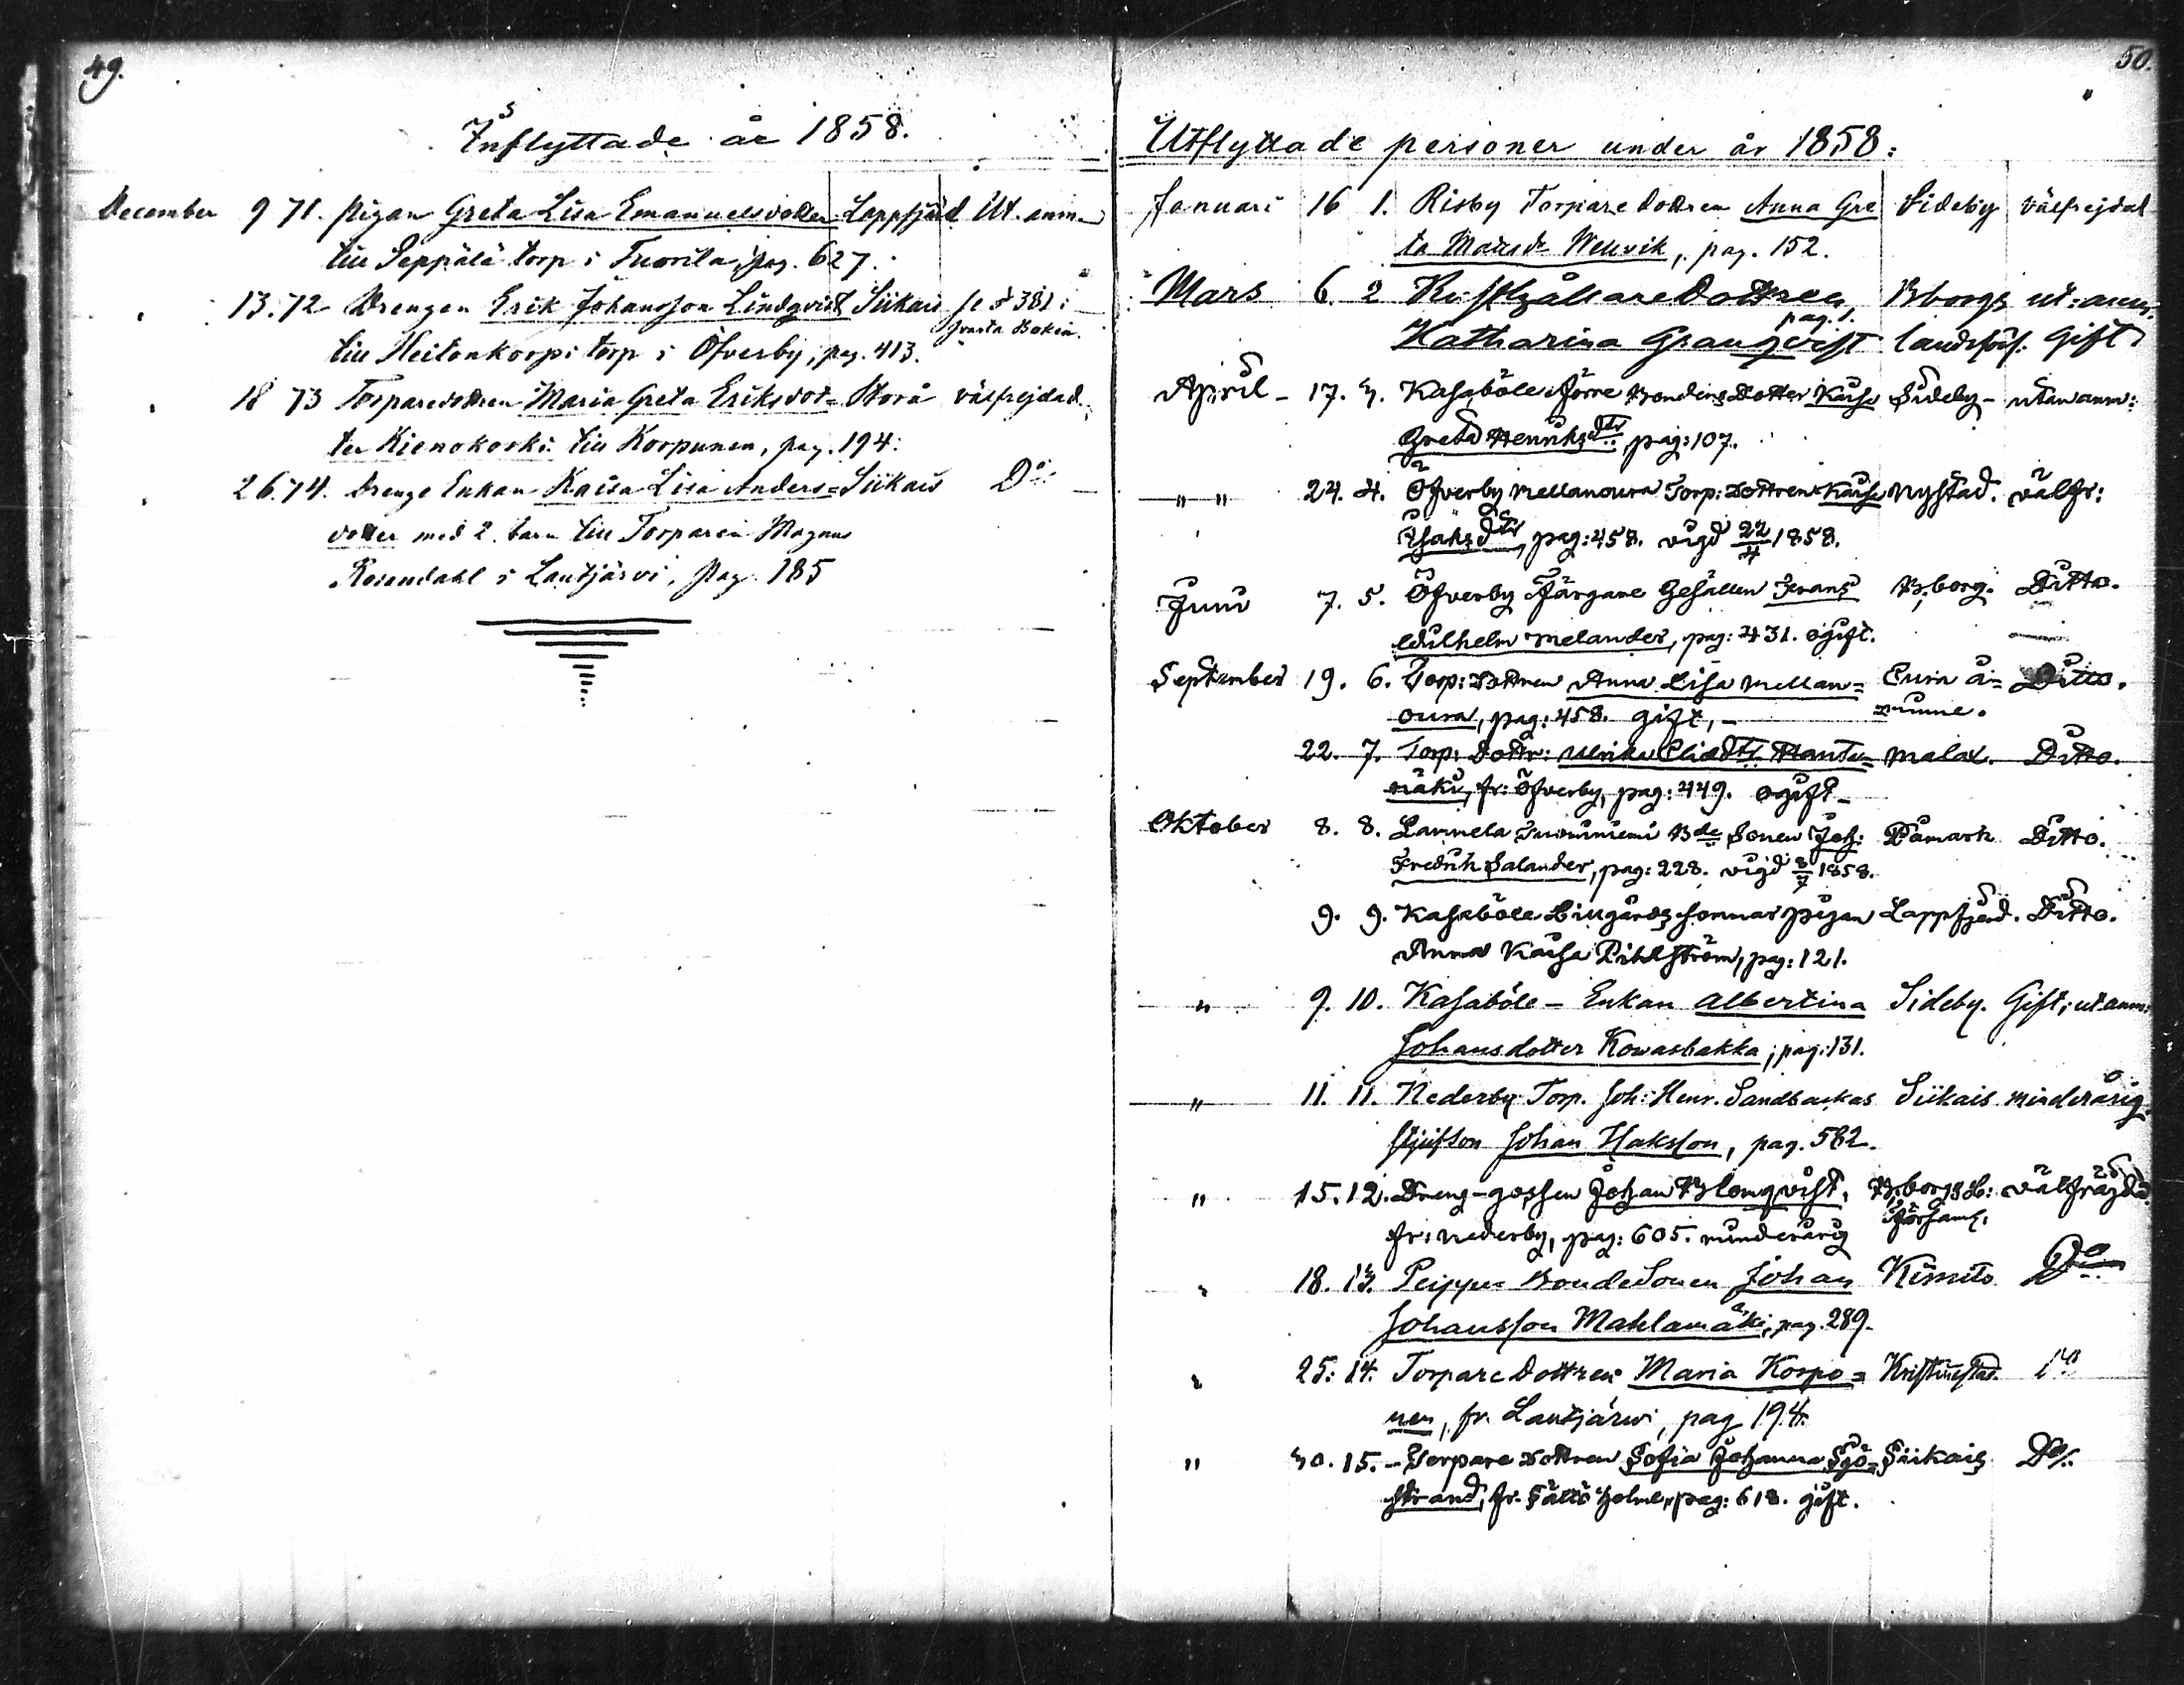 49.
Inflyttade år 1858.
December 9 71. Pigan Greta Lisa Emanuelsdotter Lappfjärd Ut. anm.
till Seppälä torp i Tuorila, pag. 627.
13. 72 Drengen Erik Johansson Lindqvist Siikais se 381:
till Heitonkorpi torp i Öfverby, pag. 413.
18 73 Torparedottren Maria Greta Eriksdot= Storå välfrejdad
ter Kienokoski till Korpunen, pag. 194:
26. 74. Drenge Enkan Kaisa Lisa Anders= Siikais Do
dotter med 2. barn till Torparen Magnus
Rosendahl i Lautjärvi, pag. 185
50.
Utflyttade personer under år 1858:
Januari 16 1. Risby Torpare dottren Anna Gre Sideby välfrejdad
ta Matsdr, pag. 152.
Mars 6. 2 Dottren B:borgs ut: anm:
pag. 1.
Katharina Granqvist landsförs: Gift
April - 17. 3. Kasaböle Bondens Dotter Kaisa Sideby - utan anm:
Greta Henriksdtr, pag: 107.
" " 24. 4. Öfverby Mellanoura Torp: Dottren Kaisa Nystad. välfr:
Isaksdtr, pag: 458. vigd 22/4 1858.
Juni 7. 5. Öfverby Färgare Gesällen Frans B:borg. Ditto.
Wilhelm Melander, pag: 431. ogift.
September 19. 6. Torp: Dottren Anna Lisa Mellan= Eura å= Ditto.
oura, pag: 458. gift, - minne.
22. 7. Torp: Dottr: Ulrika Eliædtr Hantu= Malax. Ditto.
mäki, fr: Öfverby, pag: 449. ogift -
Oktober 8. 8. Lannela Bde Sonen Joh: Påmark Ditto.
Fredrik Salander, pag: 228. vigd 8/7 1858.
9. 9. Kasaböle pigan Lappfjerd. Ditto.
Anna Kaisa Pihlström, pag: 121.
" 9. 10. Kasaböle - Enkan Albertina Sideby. Gift; ut anm:
Johansdotter Kowasbakka; pag: 131.
" 11. 11. Nederby Torp. Joh: Henr. Sandbackas Siikais minderårig
stjufson Johan Isaksson, pag. 582.
" 15. 12. Dreng-gossen Johan Blomqvist, B:borgs L: välfräjdd.
fr: Nederby, pag: 605. minderårig Församl:
" 18. 13. Peippu Bonde Sonen Johan Kimito Do
Johansson Mahlamäki, pag. 289.
" 25: 14. Torpare Dottren Maria Korpo= Kristinestad Do
nen, fr. Lautjärwi, pag 194.
" 30. 15. - Torpare Dottren Sofia Johanna Sjö= Siikais Do
strand, fr. Sältö holme, pag: 618. gift.